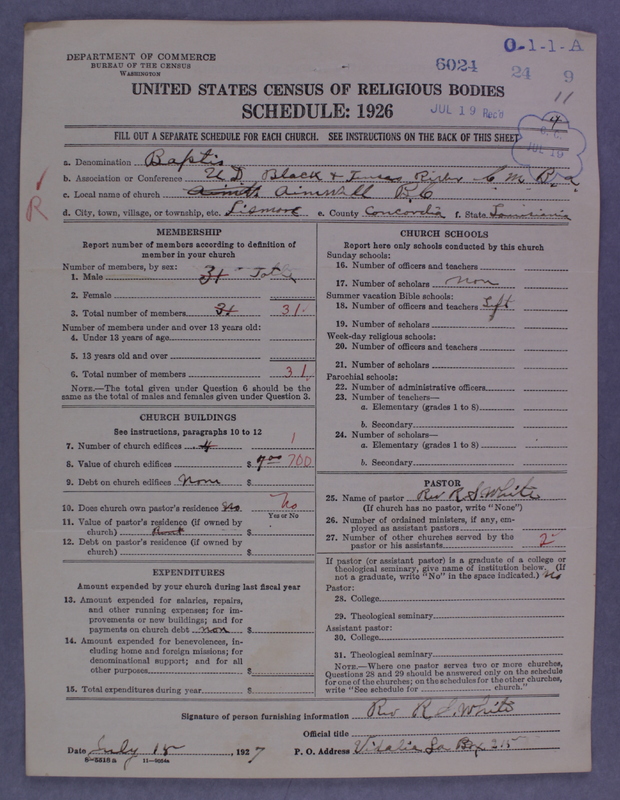 DEPARTMENT OF COMMERCE
BUREAU OF THE CENSUS
WASHINGTON
O-1-1-A
6024
24 9
11
UNITED STATES CENSUS OF RELIGIOUS BODIES
SCHEDULE: 1926
JUL 19 Rec'd
4
JUL 19
FILL OUT A SEPARATE SCHEDULE FOR EACH CHURCH. SEE INSTRUCTIONS ON THE BACK OF THIS SHEET
a. Denomination Baptis
b. Association or Conference Black + River
c. Local name of church Aimwell B.C
R
d. City, town, village, or township, etc. Lismore e. County Concordia f. State Louisiania
MEMBERSHIP
Report number of members according to definition of
member in your church
Number of members, by sex:
1. Male 31 - Total
2. Female
3. Total number of members 31 31.
Number of members under and over 13 years old:
4. Under 13 years of age
5. 13 years old and over
6. Total number of members 31
NOTE.—The total given under Question 6 should be the
same as the total of males and females given under Question 3.
CHURCH BUILDINGS
See instructions, paragraphs 10 to 12
7. Number of church edifices 4 1
8. Value of church edifices $ 700 700
9. Debt on church edifices None $
10. Does church own pastor's residence No No
Yes or No
11. Value of pastor's residence (if owned by
church) $
12. Debt on pastor's residence (if owned by
church) $
EXPENDITURES
Amount expended by your church during last fiscal year
13. Amount expended for salaries, repairs,
and other running expenses; for im-
provements or new buildings; and for
payments on church debt non $
14. Amount expended for benevolences, in-
cluding home and foreign missions; for
denominational support; and for all
other purposes $
15. Total expenditures during year $
CHURCH SCHOOLS
Report here only schools conducted by this church
Sunday schools:
16. Number of officers and teachers
17. Number of scholars non
Summer vacation Bible schools:
18. Number of officers and teachers
19. Number of scholars
Week-day religious schools:
20. Number of officers and teachers
21. Number of scholars
Parochial schools:
22. Number of administrative officers
23. Number of teachers—
a. Elementary (grades 1 to 8)
b. Secondary
24. Number of scholars—
a. Elementary (grades 1 to 8)
b. Secondary
PASTOR
25. Name of pastor Rev R S. White
(If church has no pastor, write "None")
26. Number of ordained ministers, if any, em-
ployed as assistant pastors
27. Number of other churches served by the
pastor or his assistants 2
If pastor (or assistant pastor) is a graduate of a college or
theological seminary, give name of institution below. (If
not a graduate, write "No" in the space indicated.) No
Pastor:
28. College
29. Theological seminary
Assistant pastor:
30. College
31. Theological seminary
NOTE.—Where one pastor serves two or more churches,
Questions 28 and 29 should be answered only on the schedule
for one of the churches; on the schedules for the other churches,
write "See schedule for church."
Signature of person furnishing information Rev R S. White
Official title
Date July 18, 1927 P. O. Address Vidalia La Box 215
8-5518a 11-9064a